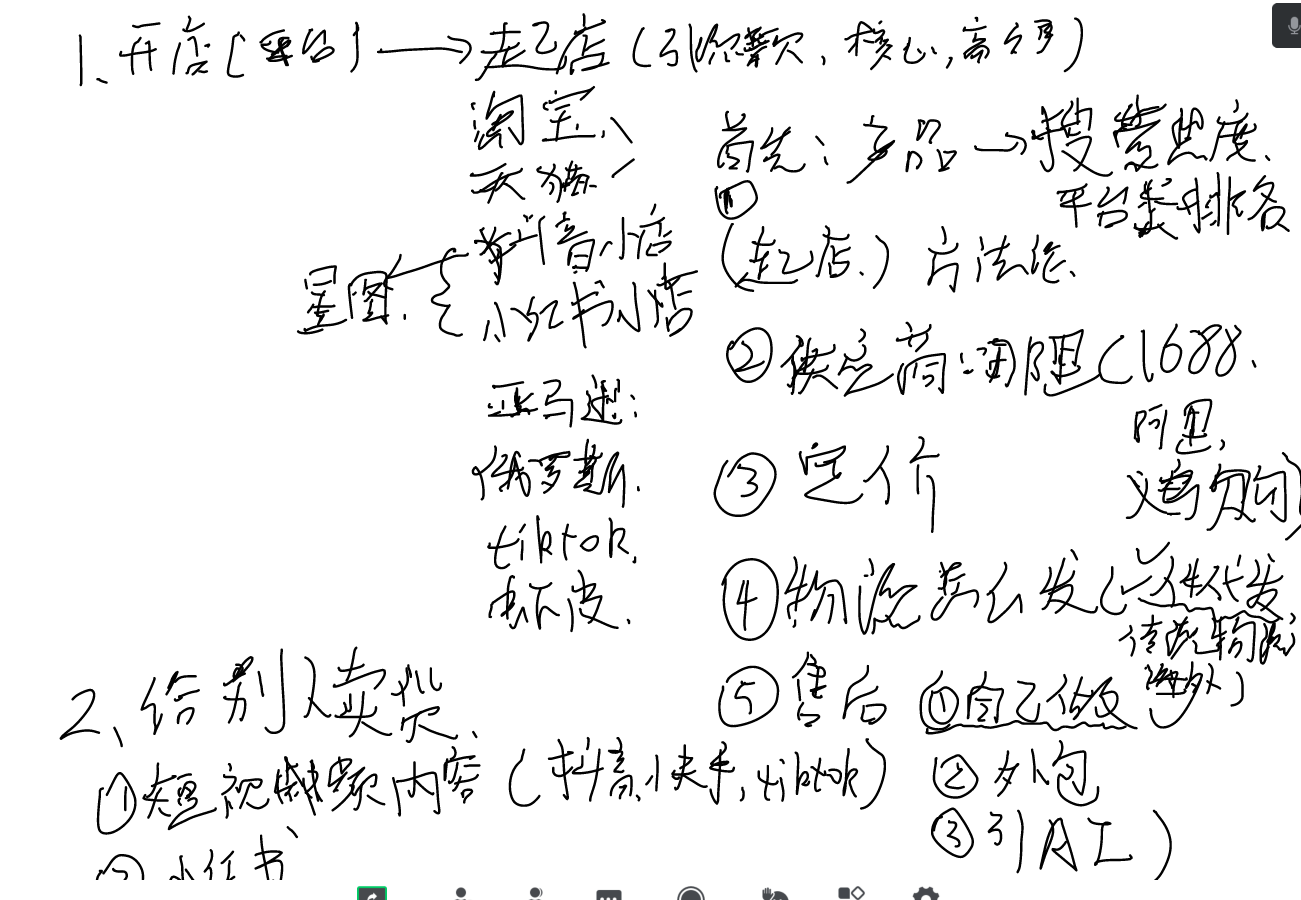 1、开店（平台）→起店（引流款，核心，高利润）
淘宝、
天猫、
抖音小店
小红书小店
星图.
亚马逊：
俄罗斯.
tiktok,
虾皮.
首先：产品→搜索热度、
平台类目排名
①
（起店.）方法论.
②供应商：调研（1688、
阿里，
义乌购）
③定价
④物流怎么发（一件代发，
传统物流
海外）
⑤售后 ①自己做
②外包
③引AI）
2、给别人卖货.
①短视频内容（抖音,快手,tiktok）
②小红书